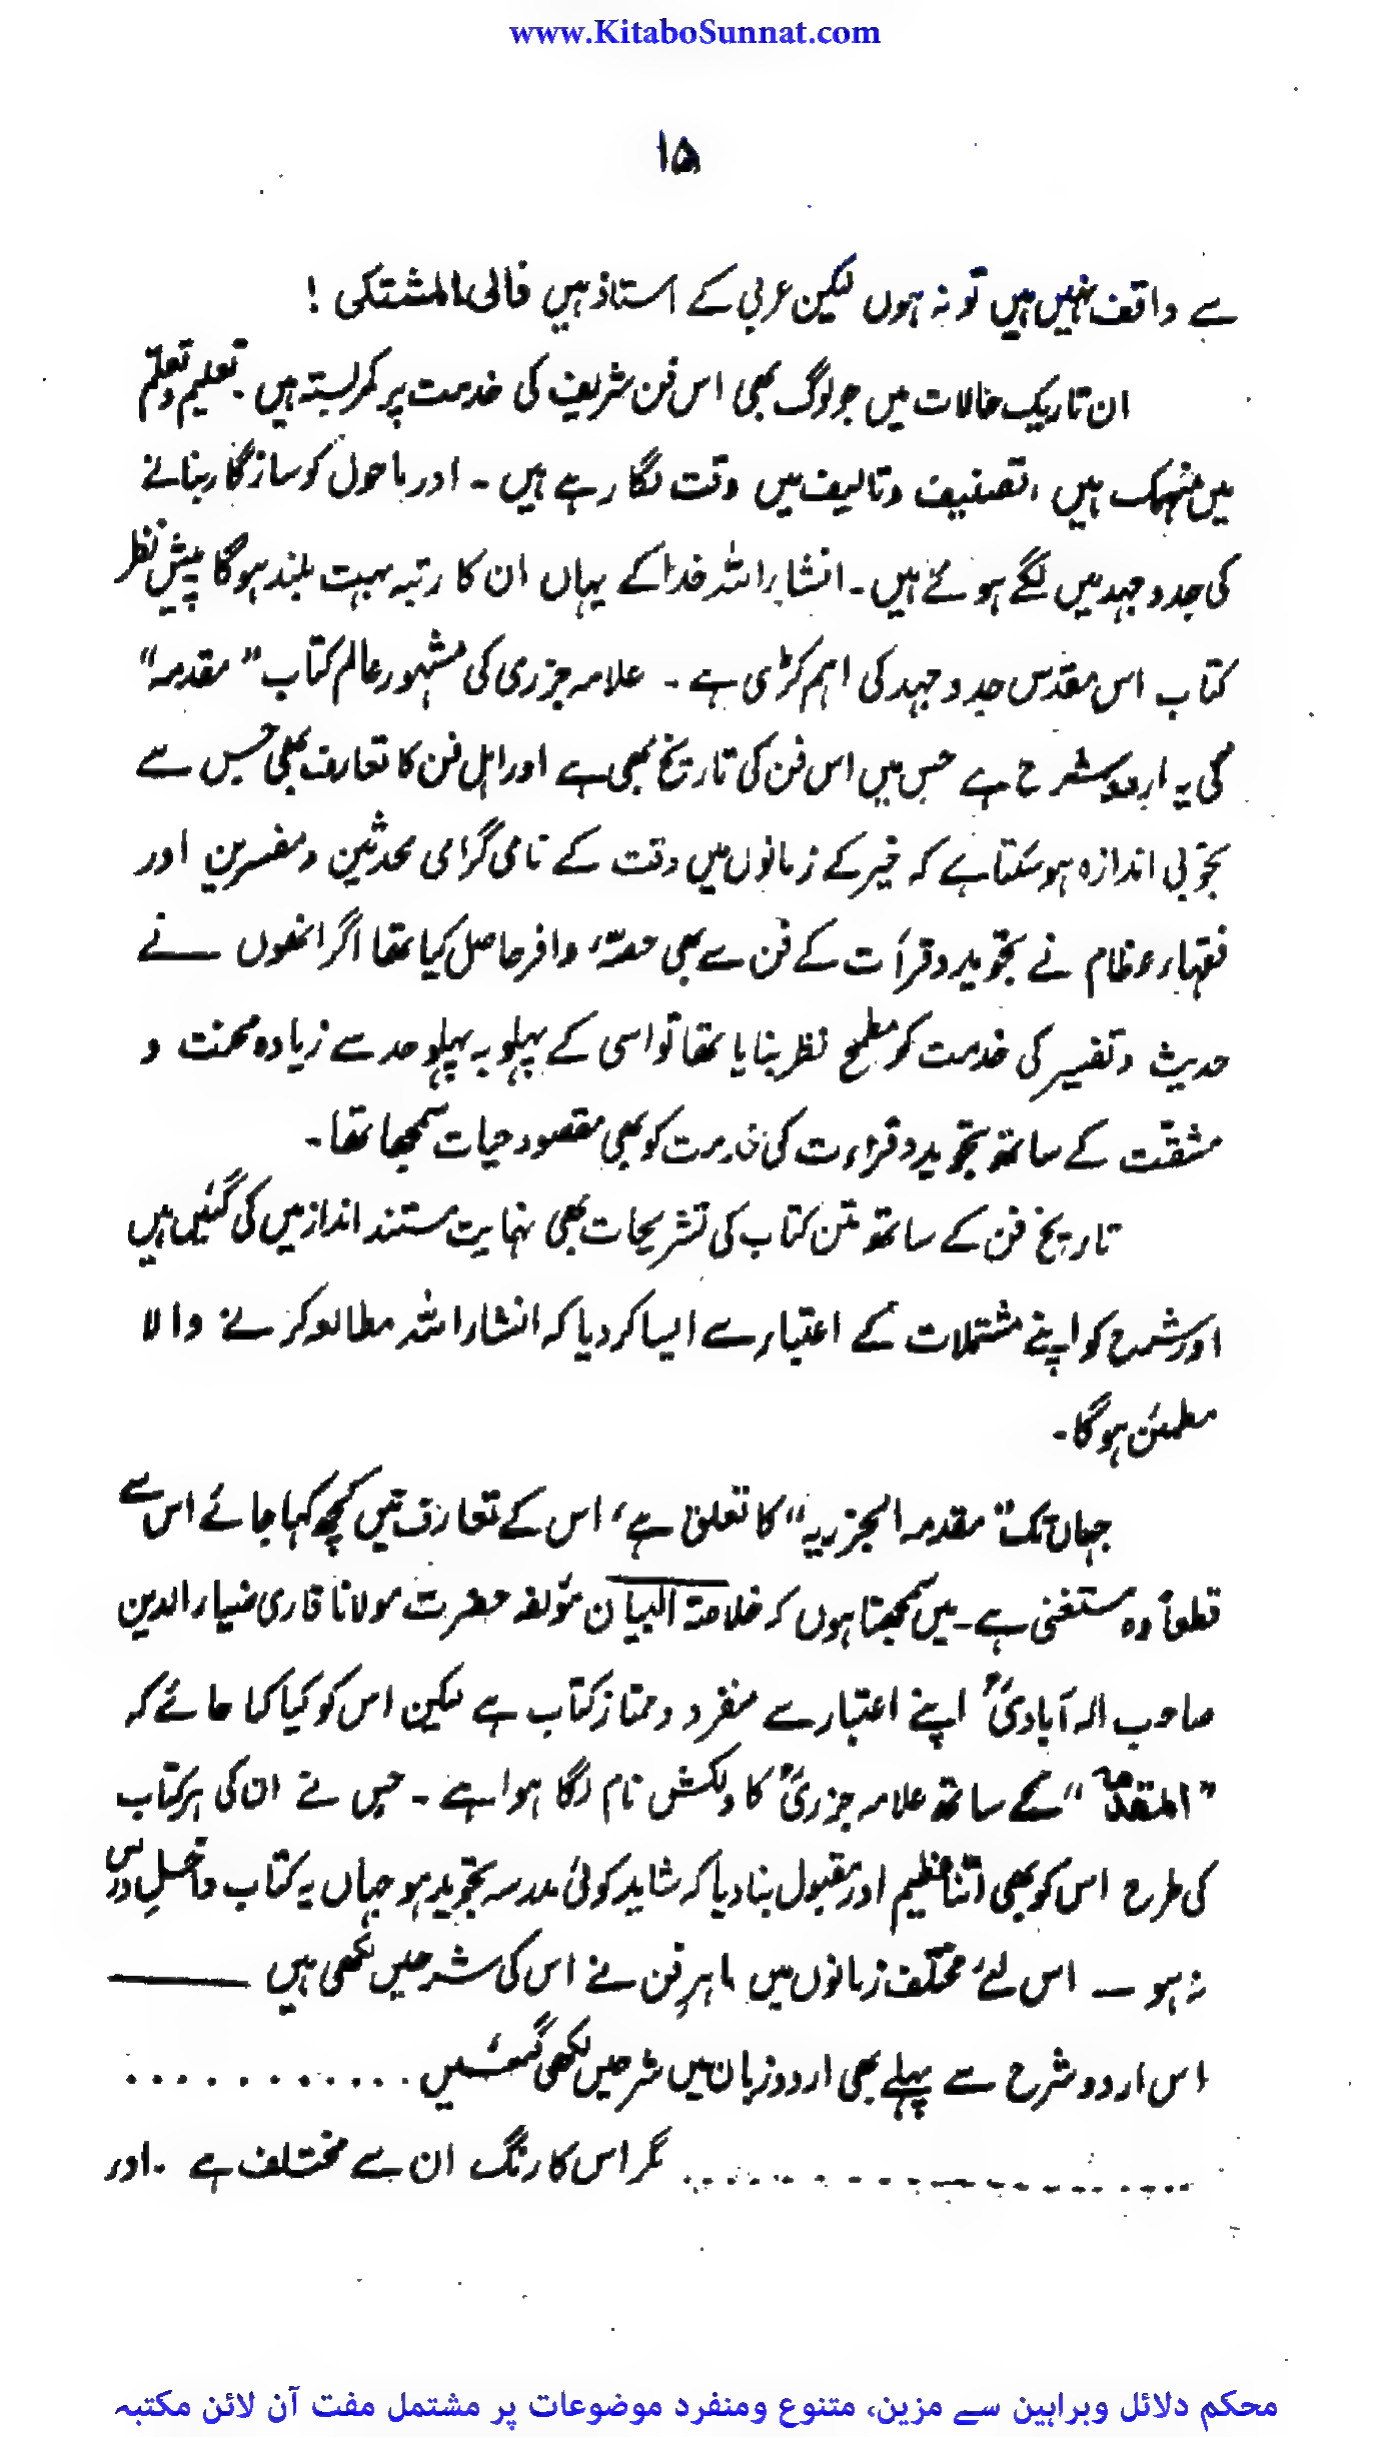 www.KitaboSunnat.com
۱۵
سے واقف نہیں ہیں تو نہ ہوں لیکن عربی کے استاذ ہیں فالی المشتکی !
ان تاریک حالات میں جو لوگ بھی اس فن شریف کی خدمت پر کمربستہ ہیں ۔ تعلیم و تعلّم
میں منہمک ہیں ، تصنیف و تالیف میں وقت لگا رہے ہیں ۔ اور ماحول کو سازگار بنانے
کی جدوجہد میں لگے ہوئے ہیں ۔ انشاء اللہ خدا کے یہاں ان کا رتبہ بہت بلند ہوگا پیش نظر
کتاب اس مقدس جدوجہد کی اہم کڑی ہے ۔ علامہ جزری کی مشہور عالم کتاب " مقدمہ "
کی یہ اردو شرح ہے جس میں اس فن کی تاریخ بھی ہے اور اہل فن کا تعارف بھی جس سے
بخوبی اندازہ ہو سکتا ہے کہ خیر کے زمانوں میں وقت کے نامی گرامی محدثین و مفسرین اور
فقہاء عظام نے تجوید و قرأت کے فن سے بھی حصّہ وافر حاصل کیا تھا اگر انھوں نے
حدیث و تفسیر کی خدمت کو مطمح نظر بنایا تھا تو اسی کے پہلو بہ پہلو حد سے زیادہ محنت و
مشقت کے ساتھ تجوید و قراءت کی خدمت کو بھی مقصود حیات سمجھا تھا ۔
تاریخ فن کے ساتھ متن کتاب کی تشریحات بھی نہایت مستند انداز میں کی گئیں ہیں
اور شرح کو اپنے مشتملات کے اعتبار سے ایسا کر دیا کہ انشاء اللہ مطالعہ کرنے والا
مطمئن ہوگا ۔
جہاں تک " مقدمہ الجزریہ " کا تعلق ہے ، اس کے تعارف میں کچھ کہا جائے اس سے
قطعاً وہ مستغنی ہے ۔ میں سمجھتا ہوں کہ خلاصۃ البیان مؤلفہ حضرت مولانا قاری ضیاء الدین
صاحب الہ آبادیؒ اپنے اعتبار سے منفرد و ممتاز کتاب ہے لیکن اس کو کیا کہا جائے کہ
" المقدمہ " کے ساتھ علامہ جزریؒ کا دلکش نام لگا ہوا ہے ۔ جس نے ان کی ہر کتاب
کی طرح اس کو بھی اتنا عظیم اور مقبول بنا دیا کہ شاید کوئی مدرسہ تجوید ہو جہاں یہ کتاب داخلِ درس
نہ ہو — اس لئے مختلف زمانوں میں ماہر فن نے اس کی شرحیں لکھی ہیں ———
اس اردو شرح سے پہلے بھی اردو زبان میں شرحیں لکھی گئیں . . . . . . . . . . .
. . . . . . . . . . . . . . . . . مگر اس کا رنگ ان سے مختلف ہے . اور
محکم دلائل وبراہین سے مزین، متنوع ومنفرد موضوعات پر مشتمل مفت آن لائن مکتبہ